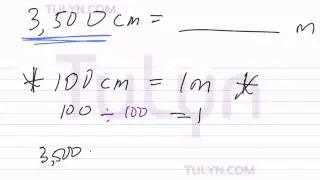 3,500 cm = ________ m
* 100 cm = 1m *
100 ÷ 100 = 1
3,500
TuLyn
TULYN.COM
TULYN.COM